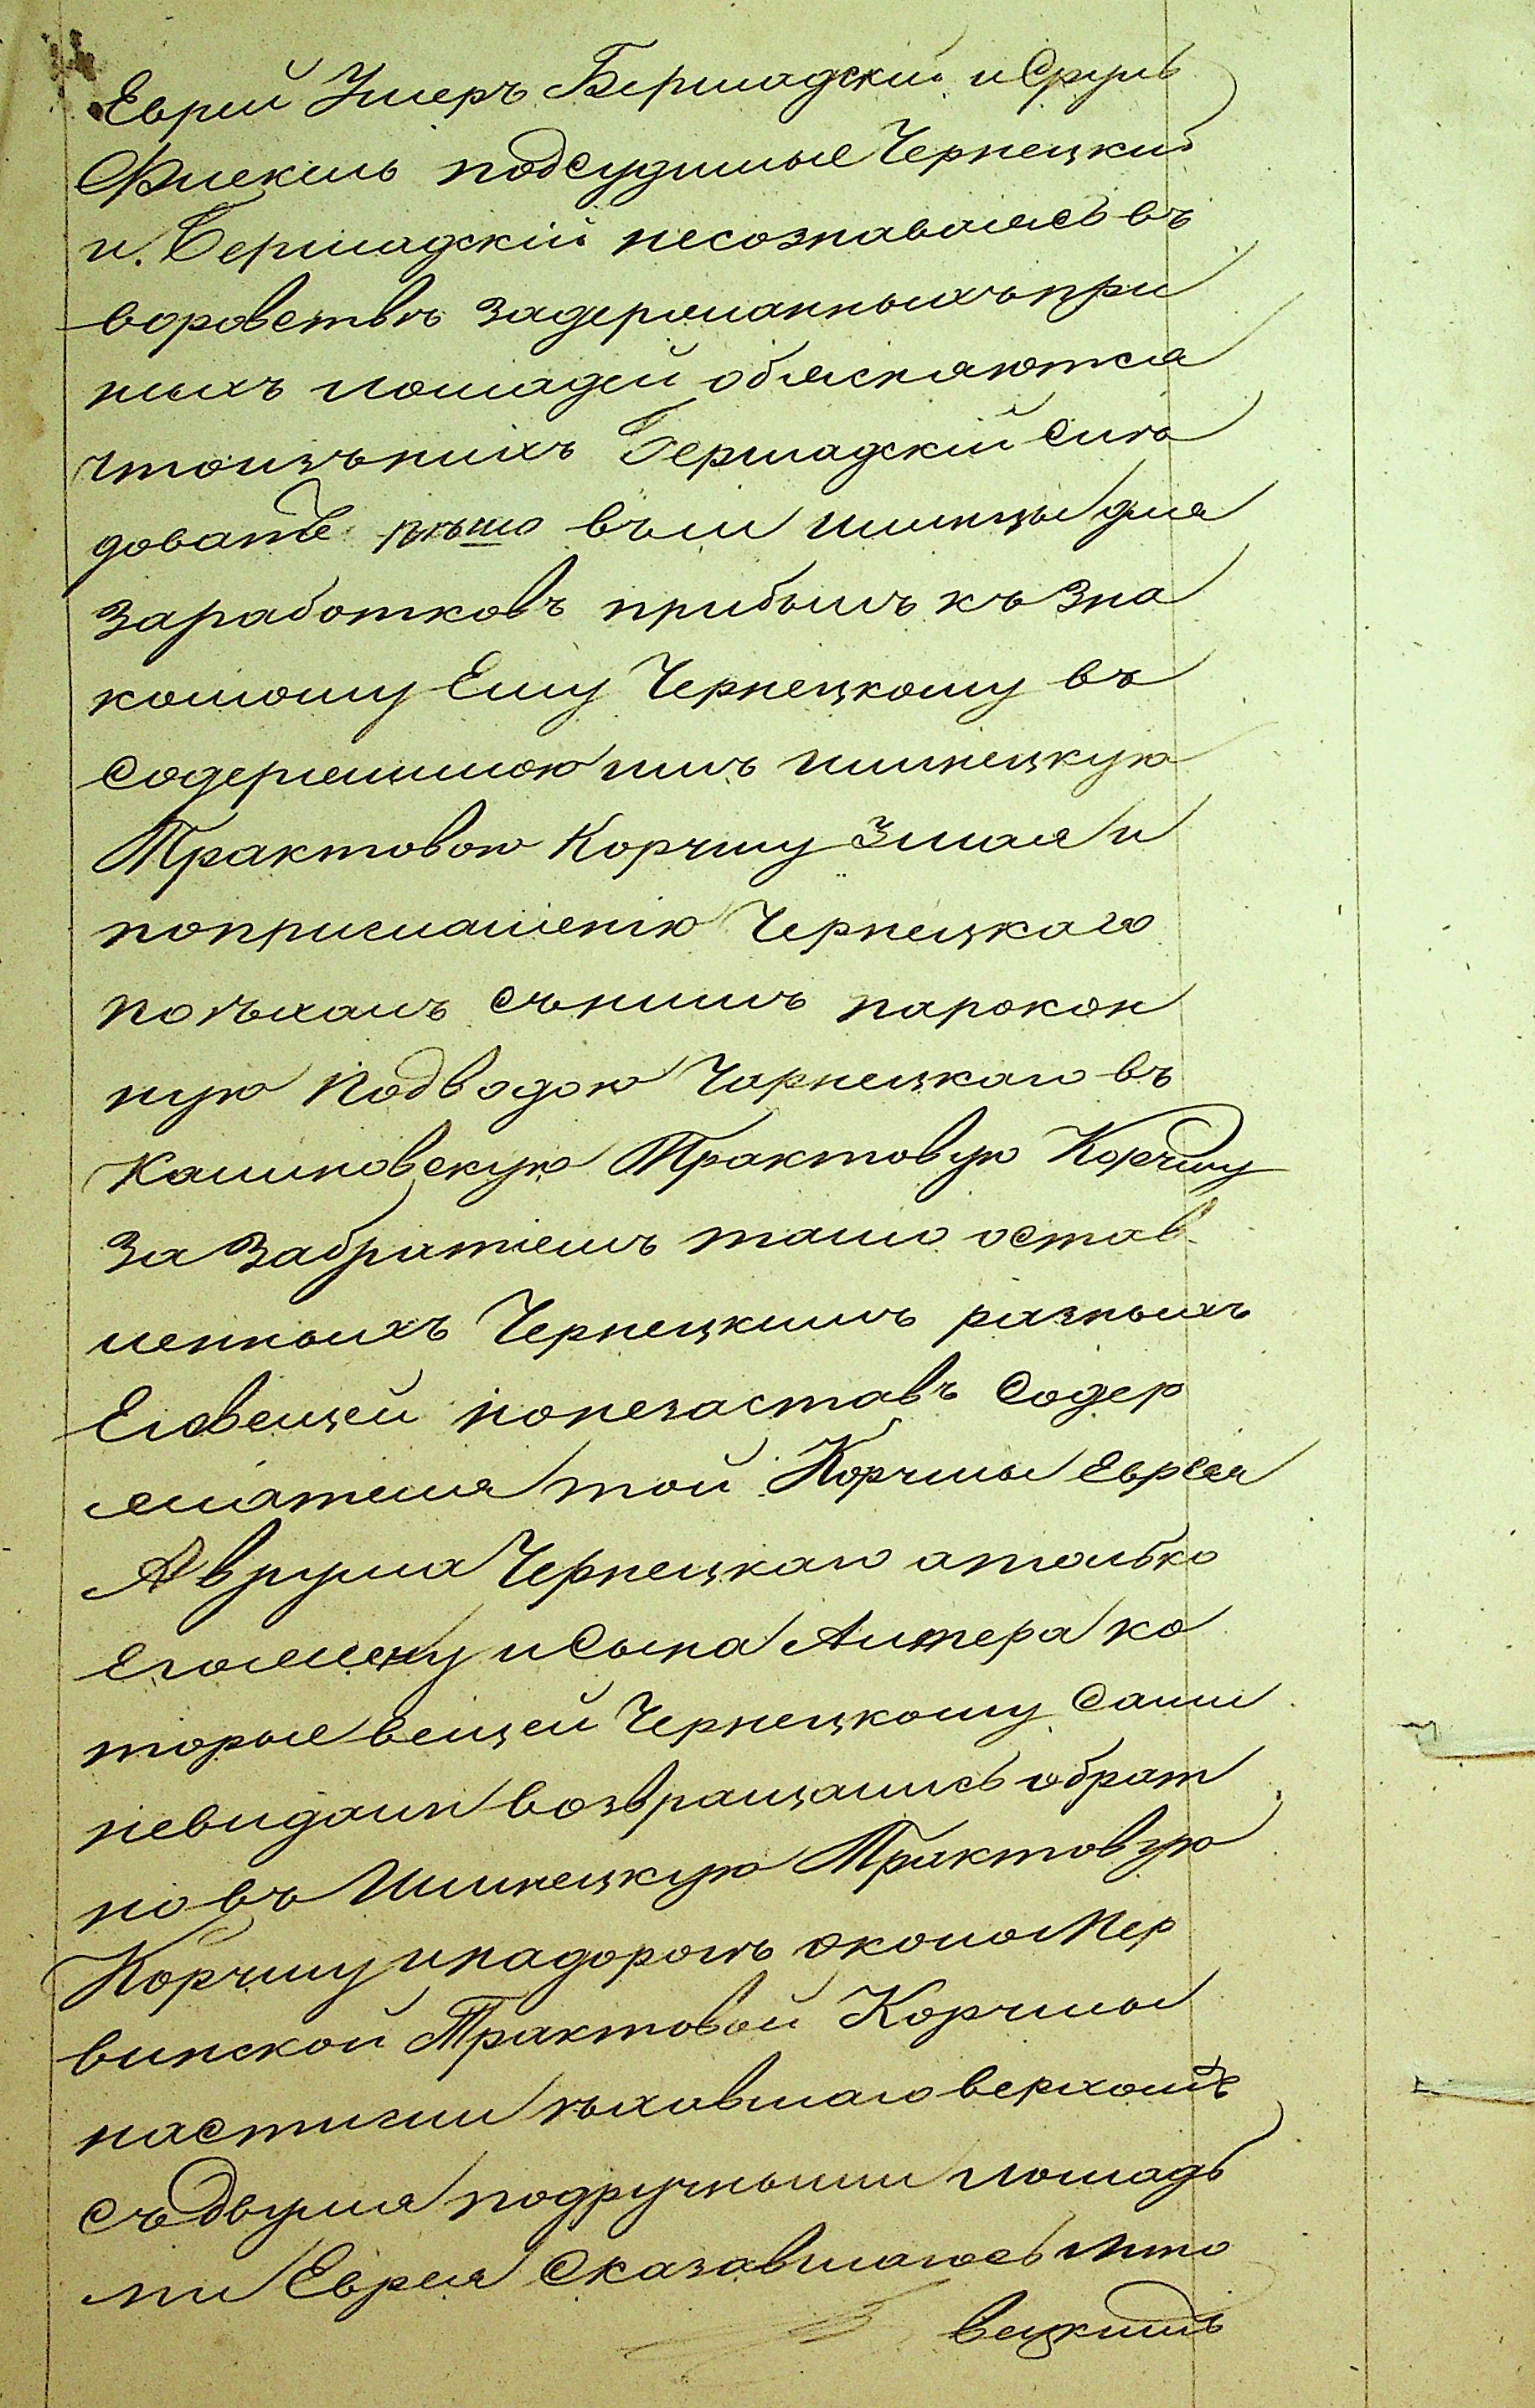 Еврей Умеръ Бершадскій и Сруль
Фиекель подсудимые Чернецкій
и Бершадскій несознаваясь въ
воровствѣ задержанныхъ при
нихъ лошадей обясняются
что изъ нихъ Бершадскій слѣ
довалъ пѣшо въ м Илинцы для
заработковъ прибылъ къ зна
комому Ему Чернецкому въ
Содержимою имъ Илинецкую
Трактовою Корчму Змая и
поприглашенію Чернецкаго
поѣхалъ съ нимъ парокон
ную подводою Чарнецкаго въ
Калиновскую Трактовую Корчму
за забратіемъ тамо остав
ленныхъ Чернецкимъ разныхъ
Его вещей но незаставъ Содер
жателя той Корчмы Еврея
Аврума Чернецкаго а только
его жену и Сына Алтера ко
торые вещей Чернецкому Сами
невидали возвращались обрат
но въ Илинецкую Трактовую
Корчму и на дорогѣ около Мер
винской Трактовой Корчмы
настигли ѣхавшаго верхомъ
съ двумя подручными лошадь
ми Еврея Сказавшагось Лито
вецкимъ